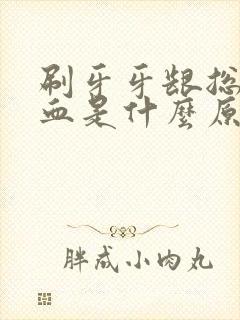 刷牙牙龈总
血是什麼原
胖成小肉丸